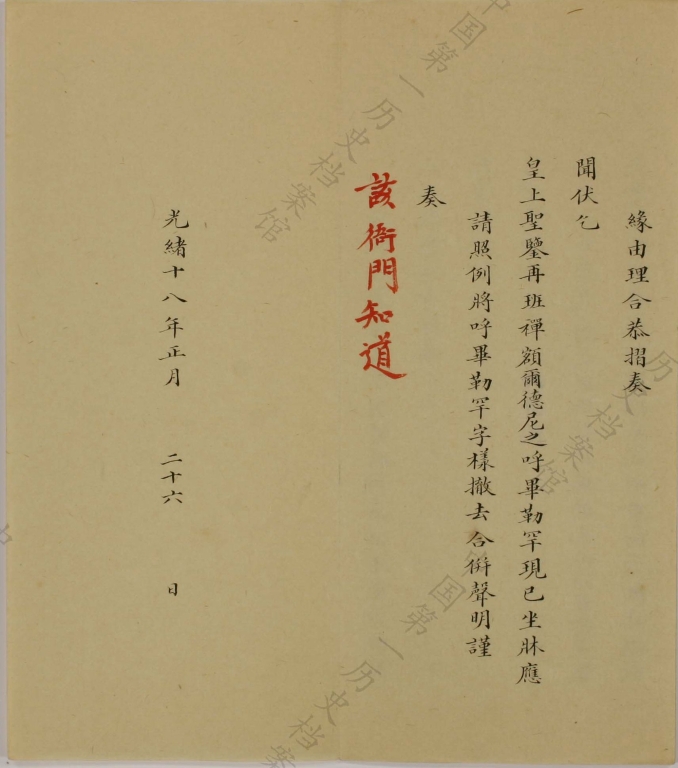 緣由理合恭摺奏
聞伏乞
皇上聖鑒再班禪額爾德尼之呼畢勒罕現已坐牀應
請照例將呼畢勒罕字樣撤去合併聲明謹
奏
該衙門知道
光緒十八年正月 二十六 日
中国第一历史档案馆
历史档案馆
中国第一历史档案馆
中